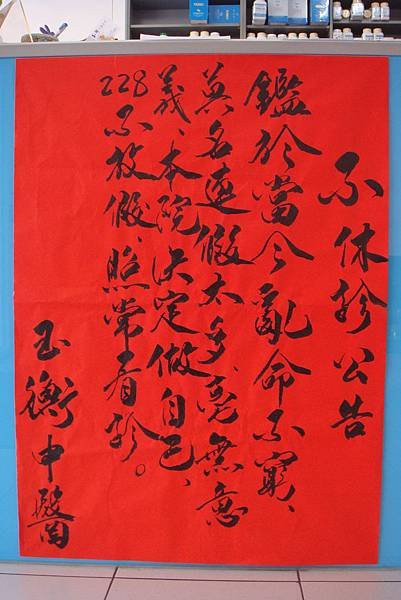 不休診公告
鑑於當今亂命不窮、
莫名連假太多、毫無意
義、本院決定做自己、
228不放假、照常看診。
玉衡中醫